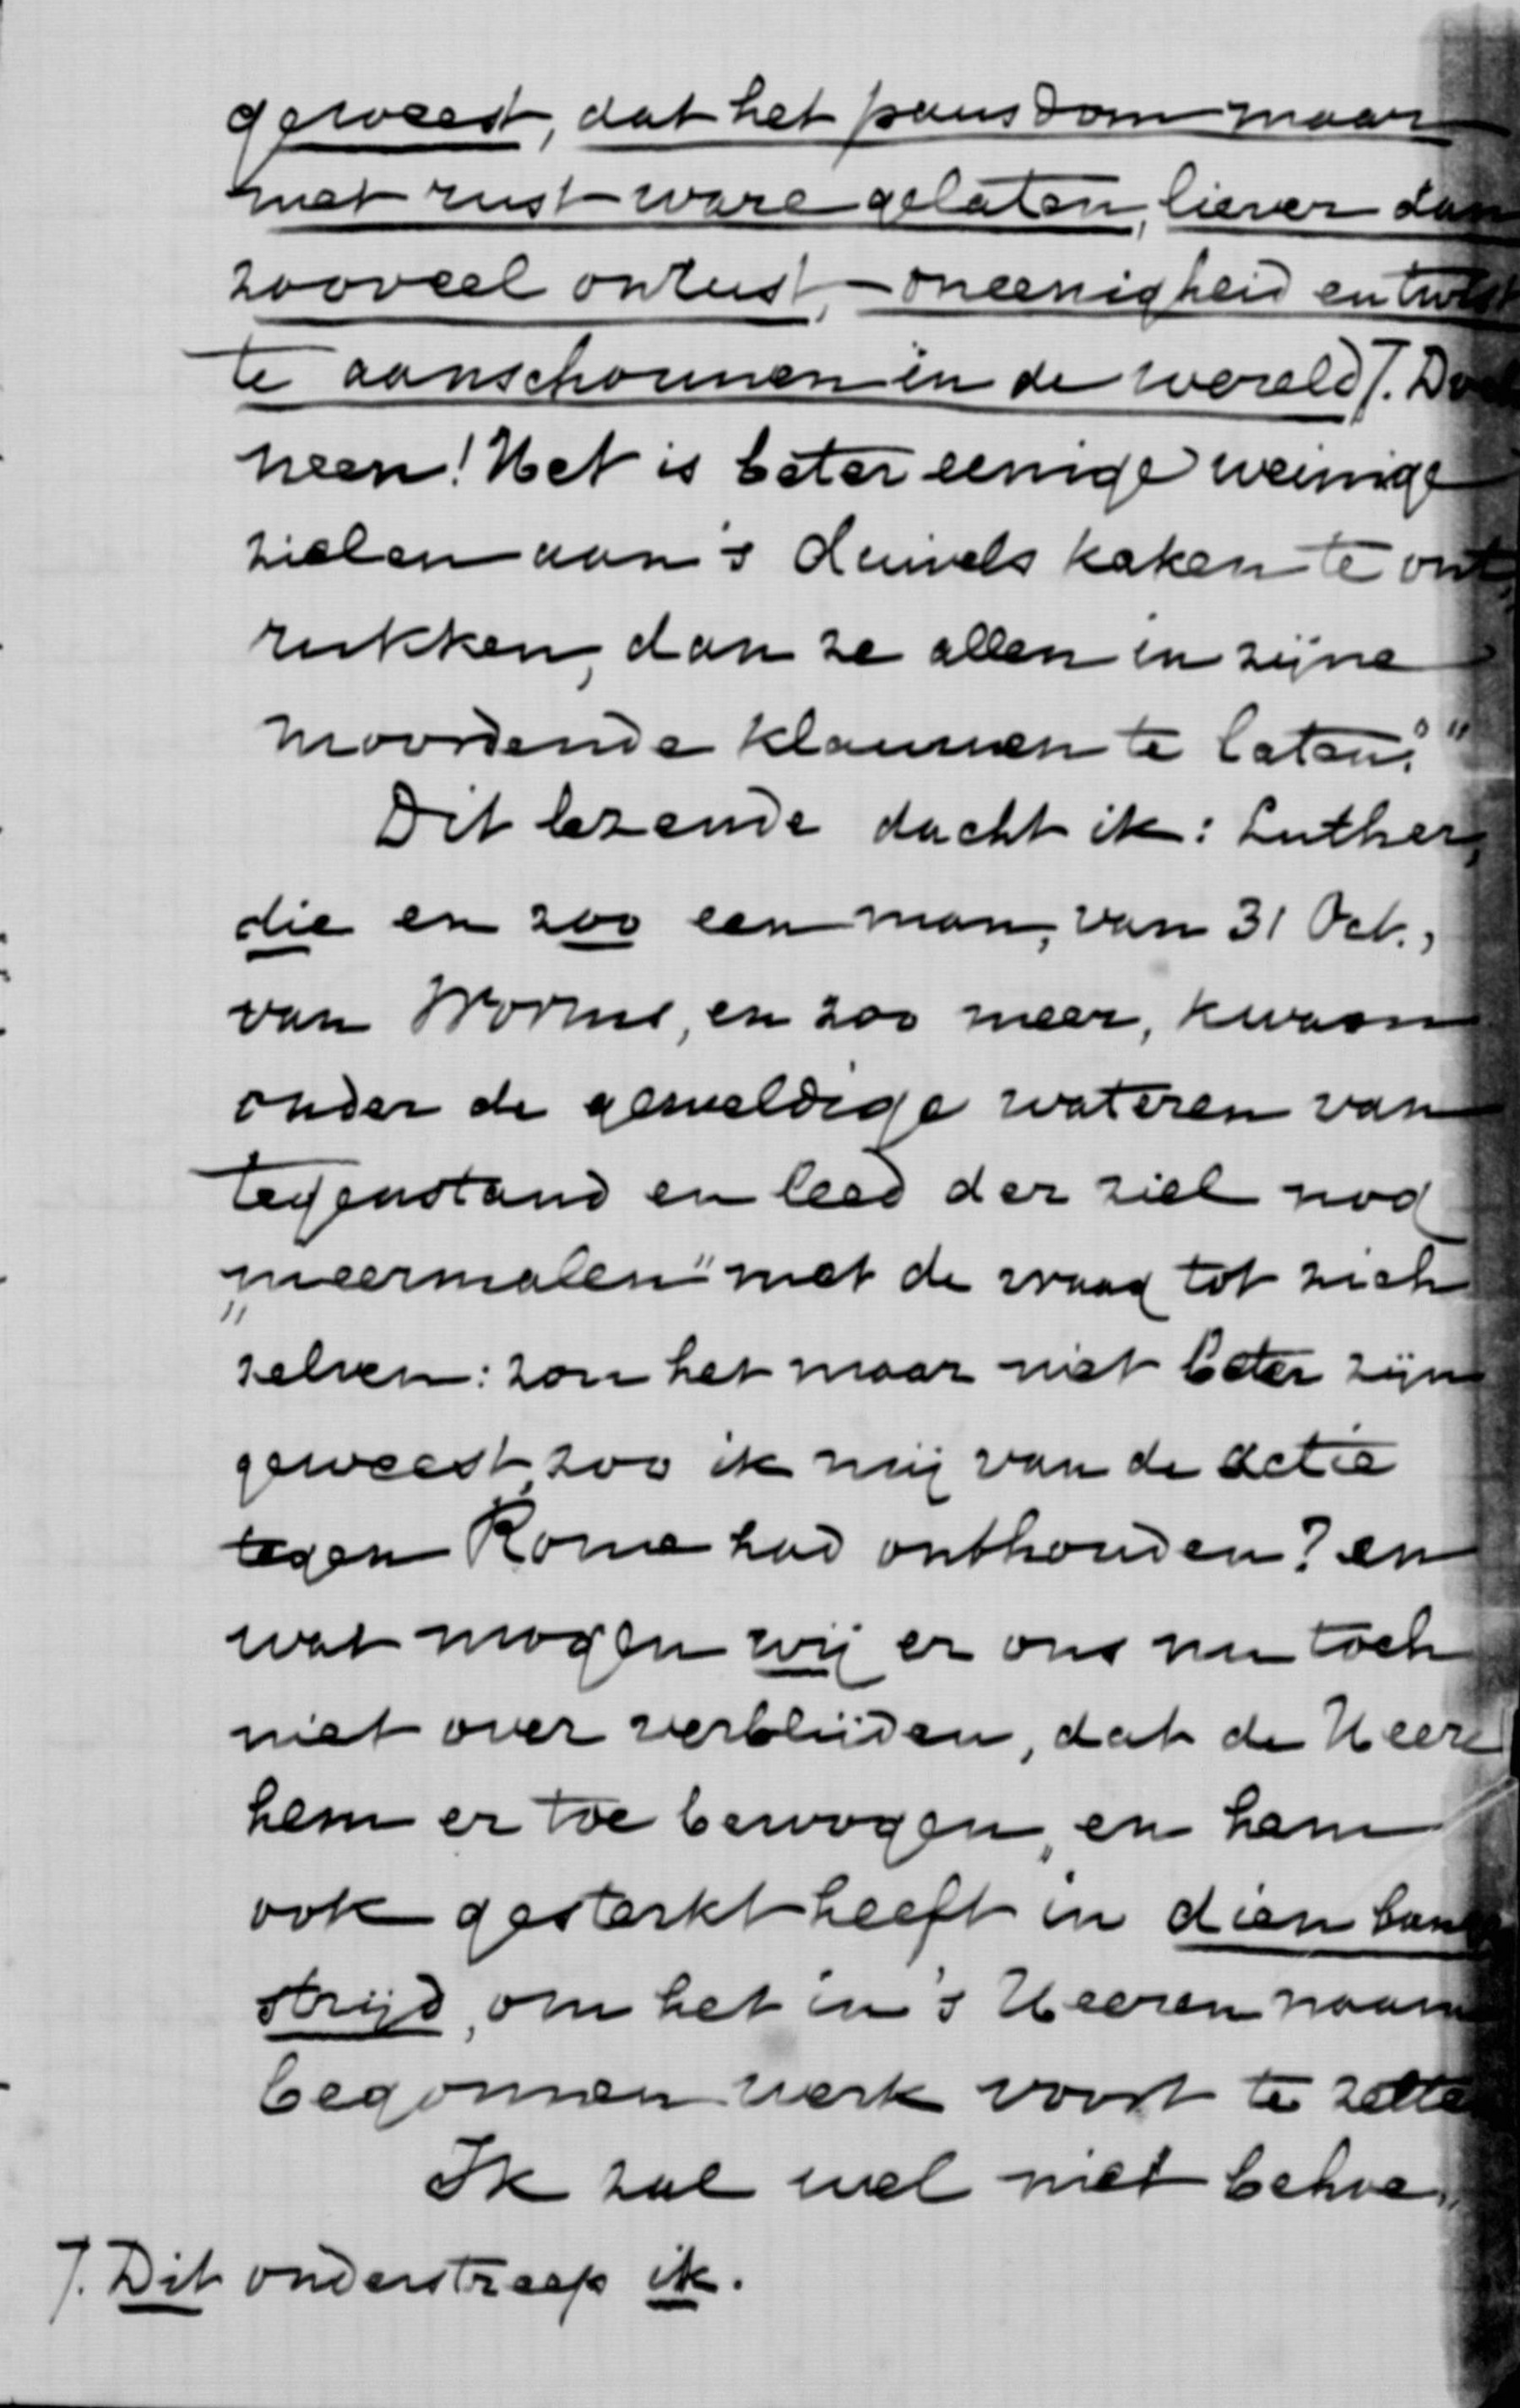 geweest, dat het pausdom maar
met rust ware gelaten, liever dan
zooveel onlust, oneenigheid en twist
te aanschouwen in de wereld 7. Doch
neen! Het is beter eenige weinige
zielen aan 's duivels kaken te ont„
rukken, dan ze allen in zijne
moordende klauwen te laten."
Dit lezende dacht ik: Luther,
die en zoo een man, van 31 Oct.,
van Worms, en zoo meer, kwam
onder de geweldige wateren van
tegenstand en leed der ziel nog
„meermalen" met de vraag tot zich
zelven: zou het maar niet beter zijn
geweest, zoo ik mij van de actie
tegen Rome had onthouden? en
wat mogen wij er ons nu toch
niet over verblijden, dat de Heere
hem er toe bewogen, en hem
ook gesterkt heeft in dien bangen
strijd, om het in 's Heeren naam
begonnen werk voort te zetten
Ik zal wel niet behoe„
7. Dit onderstreep ik.